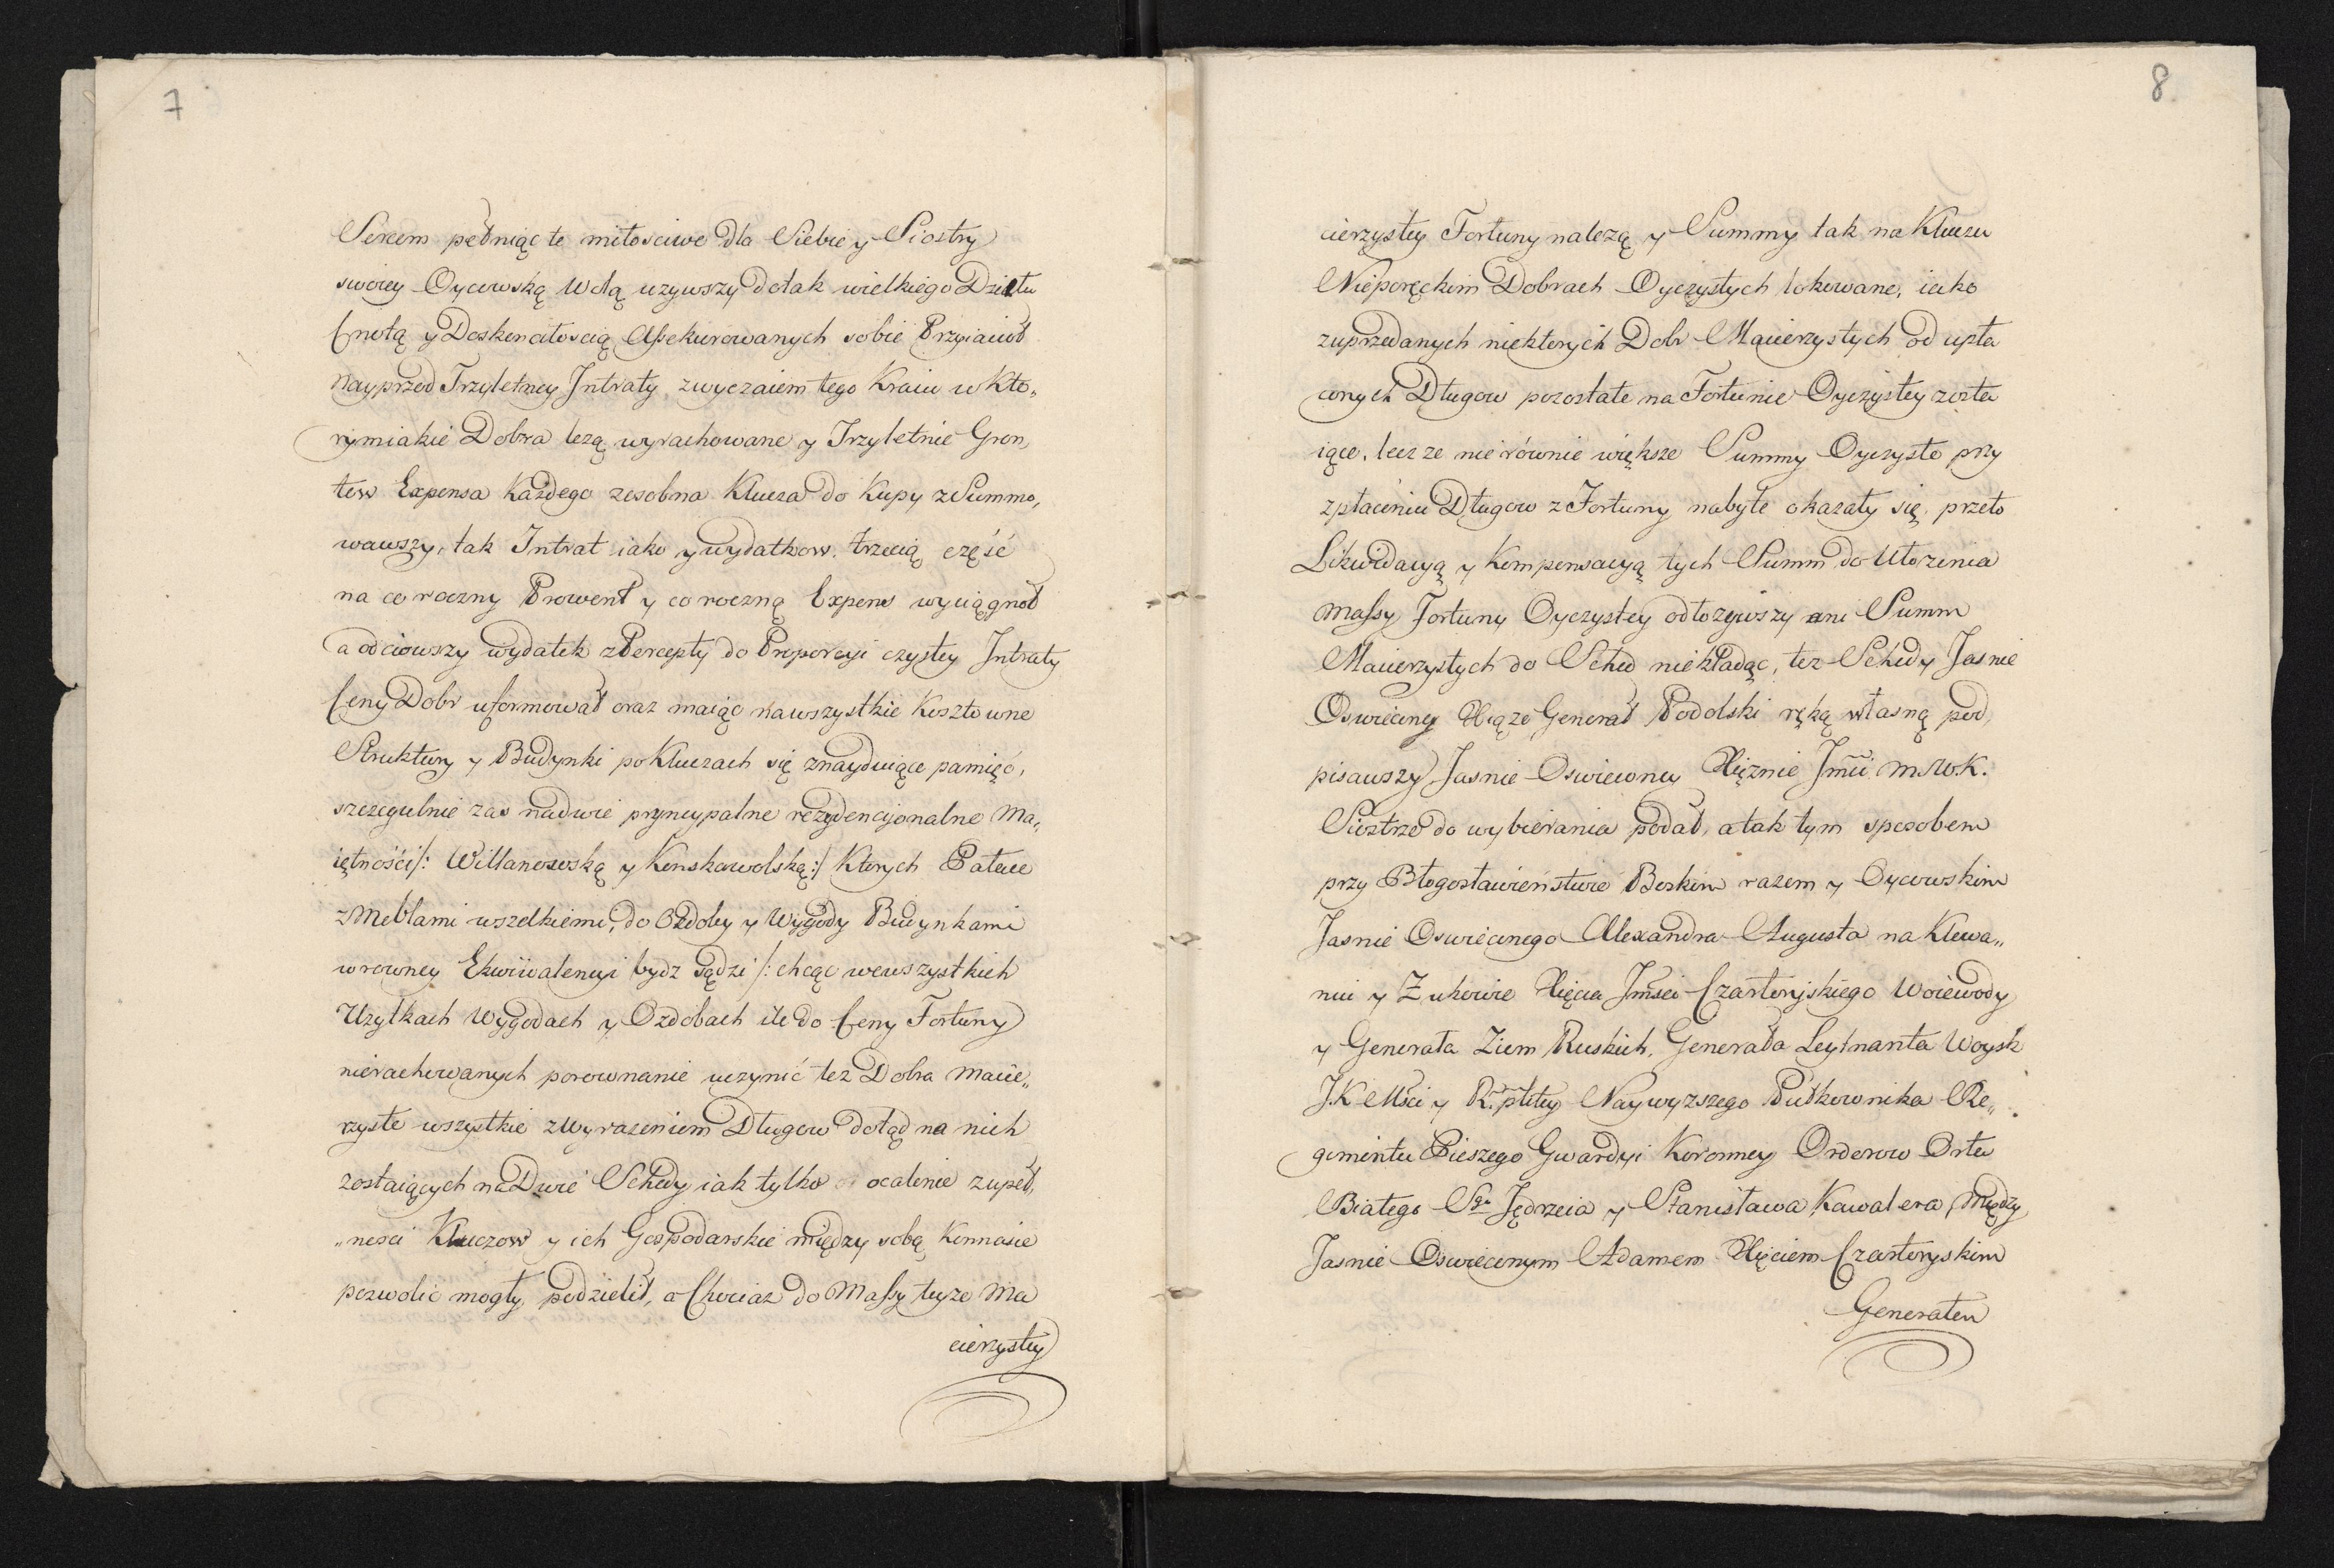 7
Sercem pełniąc te miłosciwe dla Siebie y Siostry
swoiey Oycowską Wolą uzywszy do tak wielkiego Działu
Cnotą y Doskonałoscią Assekurowanych sobie Przyiacioł
Nayprzod Trzyletney Intraty, zwyczaiem tego Kraiu w Kto„
rym iakie Dobra lezą wyrachowane y Trzyletnie Gron„
tow Expensa Każdego zosobna Klucza do Kupy z Summo„
wawszy, tak Intrat iako y wydatkow. trzecią część
na co roczny Prowent y co roczną Expens wyciągnoł
a odciowszy wydatek z Percepty do Proporcyi czystey Intraty
Ceny Dobr uformował oraz maiąc na wszystkie Kosztowne
Struktury y Budynki po Kluczach się znayduiące pamięć,
szczegulnie zas na dwie pryncypalne rezydencyonalne Ma„
iętności /: Willanowską y Konskowolską :/ Ktorych Pałace
z Meblami wszelkiemi, do Ozdoby y Wygody Budynkami
w rowney Ekwiwalencyi bydz sądzi /: chcąc we wszystkich
Uzytkach Wygodach y Ozdobach ile do Ceny Fortuny
nierachowanych porownanie uczynić też Dobra Macie„
rzyste wszystkie z wyrazeniem Długow dotąd na nich
zostaiących na Dwie Schedy iak tylko ocalenie zupeł„
„nosci Kluczow y ich Gospodarskie między sobą Konnasie
pozwolic mogły, podzielił, a Chociaz do Massy teyze Ma
cierzystey
8
cierzystey Fortuny nalezą y Summy tak na Kluczu
Nieporęckim Dobrach Oyczystych lokowane, iako
z uprzedanych niektorych Dobr Macierzystych od upła
conych Długow pozostałe na Fortunie Oyczystey zosta
iące, lecz ze nie równie większe Summy Oyczyste przy
zpłaceniu Długow z Fortuny nabyte okazały się, przeto
Likwidacyą y Kompensacyą tych Summ do Utorzenia
Massy Fortuny Oyczystey odłozywszy ani Summ
Macierzystych do Sched nie kładąc, tez Schedy Jasnie
Oswiecony Xiąze Generał Podolski ręką własną pod„
pisawszy Jasnie Oswieconey Xięznie Jmci M.W.K.
Siostrze do wybierania podał, a tak tym sposobem
przy Błogosławieństwie Boskim razem y Oycowskim
Jasnie Oswieconego Alexandra Augusta na Klewa„
niu y Zukowie Xięcia Jmsci Czartoryskiego Woiewody
y Generała Ziem Ruskich, Generała Leytnanta Woysk
J.K Mści y R. pltey Naywyzszego Pułkownika Re„
gimentu Pieszego Gwardyi Koronney Orderow Orła
Białego Sgo Jędrzeia y Stanisława Kawalera, Między
Jasnie Oswieconym Adamem Xięciem Czartoryskim
Generałem